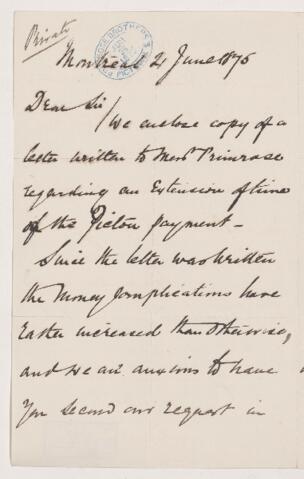 Private
PRIMROSE BROTHERS
PICTOU
Montreal 21 June 1875
Dear Sir/
We enclose copy of a
letter written to Messrs Primrose
regarding an Extension of time
of the Pictou payment –
Since the letter was written
the Money Complications have
Easter increased than otherwise,
and we are anxious to have
You second our request in